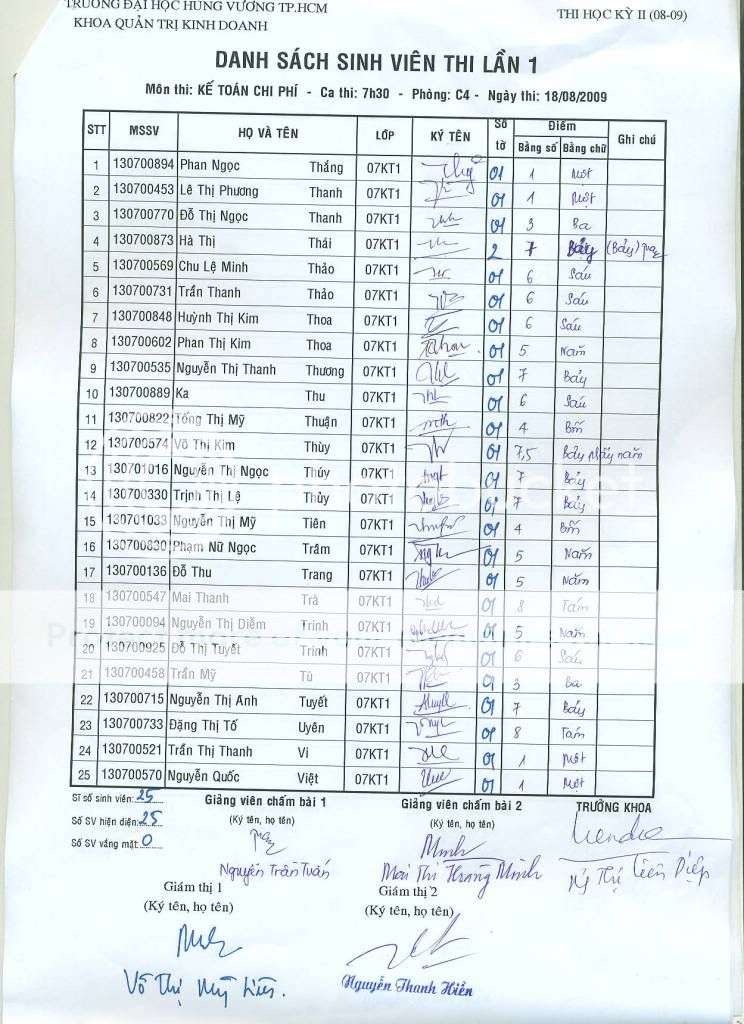 TRƯỜNG ĐẠI HỌC HÙNG VƯƠNG TP.HCM
THI HỌC KỲ II (08-09)
KHOA QUẢN TRỊ KINH DOANH
DANH SÁCH SINH VIÊN THI LẦN 1
Môn thi: KẾ TOÁN CHI PHÍ - Ca thi: 7h30 - Phòng: C4 - Ngày thi: 18/08/2009
STT MSSV HỌ VÀ TÊN LỚP KÝ TÊN Số tờ Điểm Bằng số Bằng chữ Ghi chú
1 130700894 Phan Ngọc Thắng 07KT1 01 1 Một
2 130700453 Lê Thị Phương Thanh 07KT1 01 1 Một
3 130700770 Đỗ Thị Ngọc Thanh 07KT1 01 3 Ba
4 130700873 Hà Thị Thái 07KT1 2 7 Bảy (Bảy)
5 130700569 Chu Lệ Minh Thảo 07KT1 01 6 Sáu
6 130700731 Trần Thanh Thảo 07KT1 01 6 Sáu
7 130700848 Huỳnh Thị Kim Thoa 07KT1 01 6 Sáu
8 130700602 Phan Thị Kim Thoa 07KT1 01 5 Năm
9 130700535 Nguyễn Thị Thanh Thương 07KT1 01 7 Bảy
10 130700889 Ka Thu 07KT1 01 6 Sáu
11 130700822 Tống Thị Mỹ Thuận 07KT1 01 4 Bốn
12 130700574 Võ Thị Kim Thùy 07KT1 01 7,5 Bảy phẩy năm
13 130701016 Nguyễn Thị Ngọc Thúy 07KT1 01 7 Bảy
14 130700330 Trịnh Thị Lệ Thủy 07KT1 01 7 Bảy
15 130701033 Nguyễn Thị Mỹ Tiên 07KT1 01 4 Bốn
16 130700830 Phạm Nữ Ngọc Trâm 07KT1 01 5 Năm
17 130700136 Đỗ Thu Trang 07KT1 01 5 Năm
18 130700547 Mai Thanh Trà 07KT1 01 8 Tám
19 130700094 Nguyễn Thị Diễm Trinh 07KT1 01 5 Năm
20 130700925 Đỗ Thị Tuyết Trinh 07KT1 01 6 Sáu
21 130700458 Trần Mỹ Tú 07KT1 01 3 Ba
22 130700715 Nguyễn Thị Ánh Tuyết 07KT1 01 7 Bảy
23 130700733 Đặng Thị Tố Uyên 07KT1 01 8 Tám
24 130700521 Trần Thị Thanh Vi 07KT1 01 1 Một
25 130700570 Nguyễn Quốc Việt 07KT1 01 1 Một
Sĩ số sinh viên: 25 Giảng viên chấm bài 1 Giảng viên chấm bài 2 TRƯỞNG KHOA
Số SV hiện diện: 25 (Ký tên, họ tên) (Ký tên, họ tên)
Số SV vắng mặt: 0
Minh
Nguyễn Trần Tuấn Mai Thị Hoàng Minh Ng Thị Liên Diệp
Giám thị 1 Giám thị 2
(Ký tên, họ tên) (Ký tên, họ tên)
Võ Thị Mỹ Liên.
Nguyễn Thanh Hiền